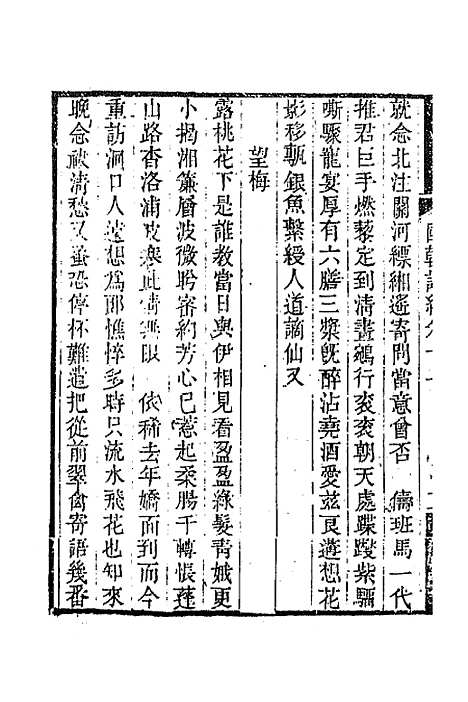 就念北注關河縹緗遙寄問當意會否　儔班馬一代
推君巨手燃藜定到清晝鵷行衮衮朝天處蹀躞紫騮
嘶驟龍宴厚有六膳三漿旣醉沾堯酒愛兹良遊想花
影移甎銀魚繫綬人道謫仙又
望梅
露桃花下是誰教當日與伊相見看盈盈綠髮靑娥更
小揭湘簾層波微盼密約芳心已惹起柔腸千轉悵蓬
山路杳洛浦 此情無限　依稀去年嬌面到而今
重訪洞口人遠想爲郎憔悴多時只流水飛花也知來
晚念祓淸愁又蚤恐停杯難遣把從前翠禽靑語幾番
國朝詞綜